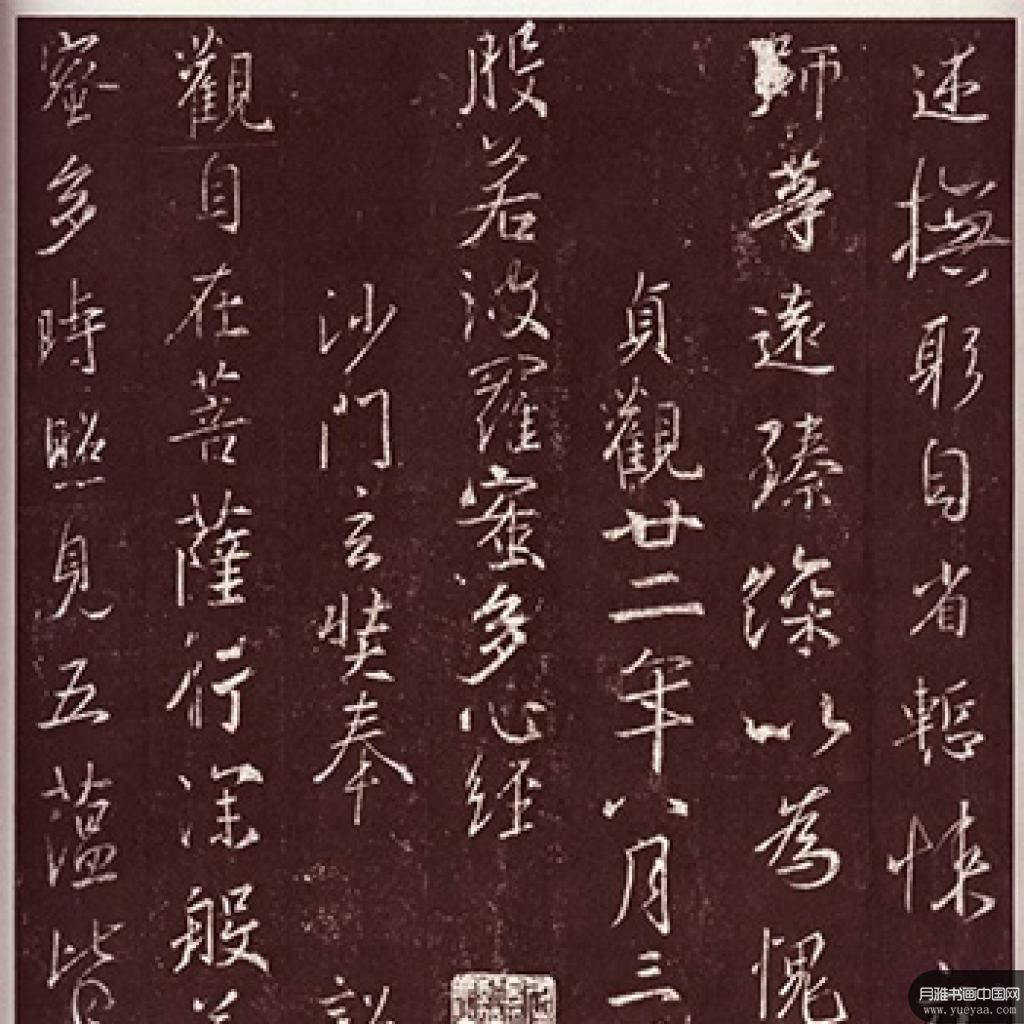 述撫躬自省慙悚
師等遠臻深以為愧
貞觀廿二年八月三
般若波羅蜜多心經
沙門玄奘奉 詔
觀自在菩薩行深般若
蜜多時照見五蘊皆
月雅书画中国网
www.yueyaa.com